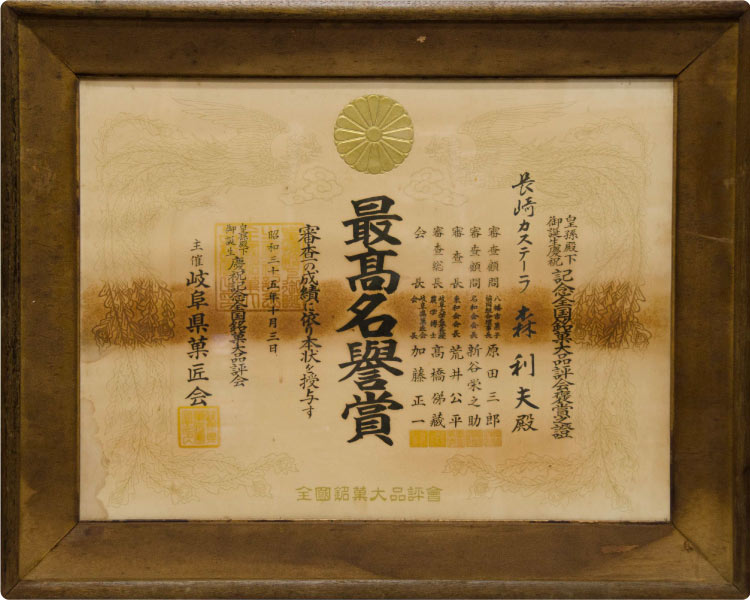 皇孫殿下
御誕生慶祝
記念全国銘菓大品評会褒賞之證
長崎カステーラ 森利夫殿
審査顧問 原田三郎
審査顧問 名和会会長 新谷栄之助
審査長 荒井公平
審査総長 農学博士 高橋悌蔵
会長 会長 加藤正一
最高名譽賞
審査の成績に依り本状を授与す
昭和三十五年十月三日
皇孫殿下
御誕生
慶祝記念全国銘菓大品評会
主催 岐阜県菓匠会
全國銘菓大品評會